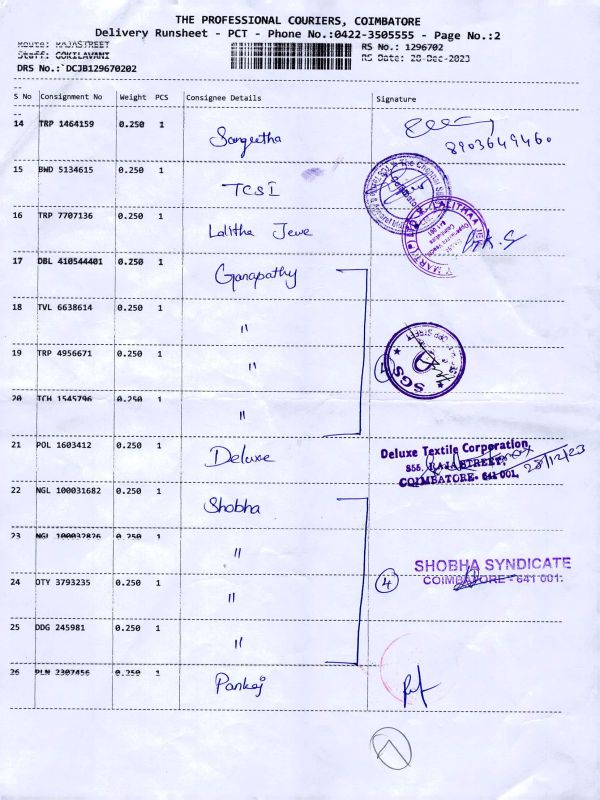 THE PROFESSIONAL COURIERS, COIMBATORE
Delivery Runsheet - PCT - Phone No.:0422-3505555 - Page No.:2
Route: RAJASTREET RS No.: 1296702
Staff: GOKILAVANI RS Date: 28-Dec-2023
DRS No.:`DCJB129670202
S No Consignment No Weight PCS Consignee Details Signature
14 TRP 1464159 0.250 1 Sangeetha 8903649460
15 BWD 5134615 0.250 1 TCSI
16 TRP 7707136 0.250 1 Lalitha Jewe
17 DBL 410544401 0.250 1 Ganapathy
18 TVL 6638614 0.250 1 "
19 TRP 4956671 0.250 1 " SGS
20 TCH 1545796 0.250 1 "
21 POL 1603412 0.250 1 Deluxe Deluxe Textile Corporation,
855, RAJA STREET, 28/12/23
COIMBATORE- 641 001.
22 NGL 100031682 0.250 1 Shobha
23 NGL 100032826 0.250 1 " SHOBHA SYNDICATE
24 OTY 3793235 0.250 1 " 4 COIMBATORE - 641 001.
25 DDG 245981 0.250 1 "
26 PLN 2307456 0.250 1 Pankaj